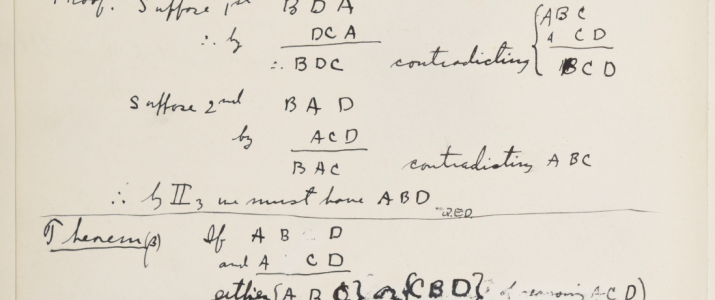 Proof. Suppose 1st B D A { A B C
∴ by D C A A C D
∴ B D C contradicting B C D
Suppose 2nd B A D
by A C D
B A C contradicting A B C
∴ by II 3 we must have A B D QED
Theorem (β) If A B D
and A C D
either {A B C} or {C B D} of A C D)